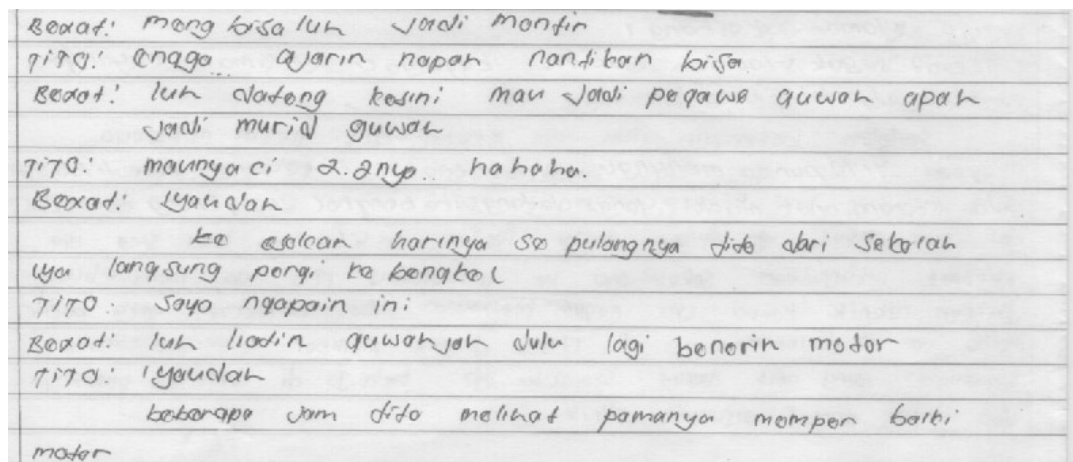 Boxat: mang bisa luh jadi montir
TiTO: engga ajarin napah nantikan bisa
Boxat: luh datong kesini mau jadi pegawe guwah apah
jadi murid guwah
TiTO: maunya ci 2.2nya hahaha.
Boxat: iyaudah
ke esokan harinya se pulangnya tito dari sekolah
iya langsung pergi ke bengkel
TiTO: Saya ngapain ini
Boxat: luh liatin guwahjah dulu lagi benerin motor
TiTO: iyaudah
beberapa jam tito melihat pamanya memper baiki
motor